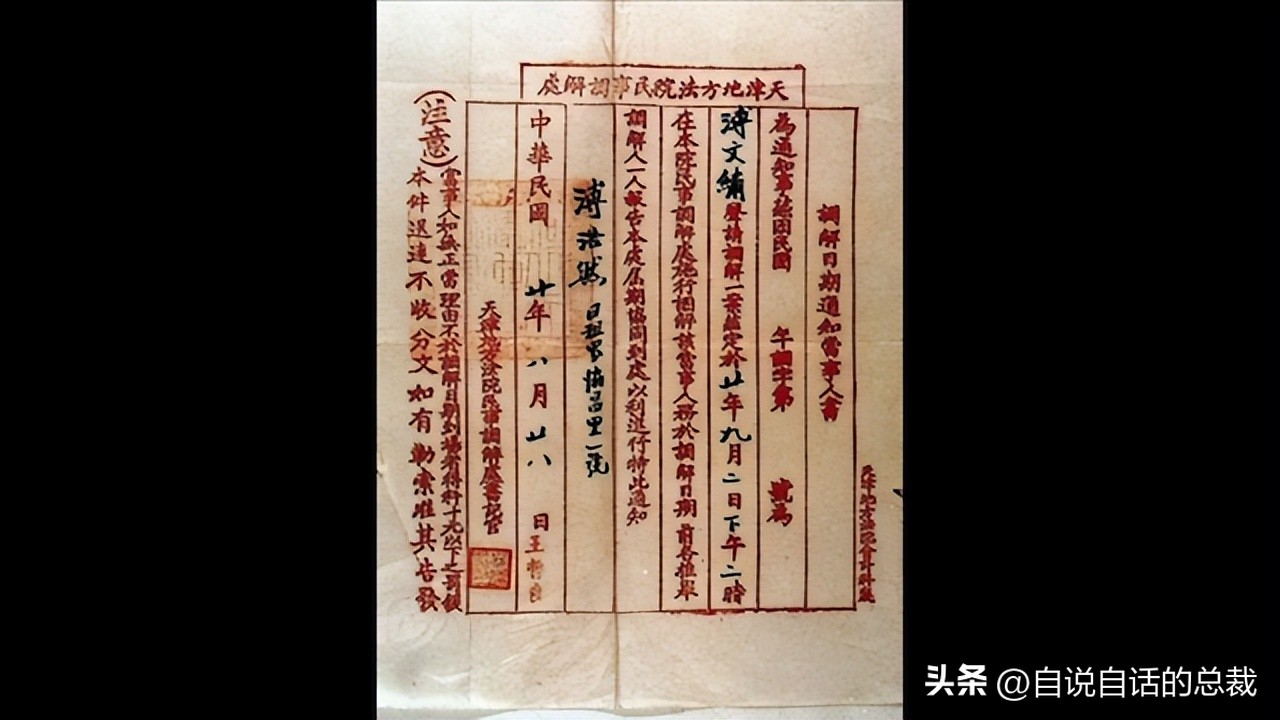 天津地方法院民事調解處
調解日期通知當事人書
為通知事茲因民國 午調字第 號為
溥文繡聲請調解一案鑑定於廿年九月二日下午二時
在本院民事調解處施行調解該當事人務於調解日期前各推舉
調解人一人報告本處屆期協同到處以利進行特此通知
溥浩然 日租界協昌里一號
中華民國 廿年 八月 廿八 日
天津地方法院民事調解處書記官
(注意)當事人如無正當理由不於調解日期到場者得科十元以下之罰鍰
本件送達不收分文如有勒索准其告發
頭条 @自说自话的总裁